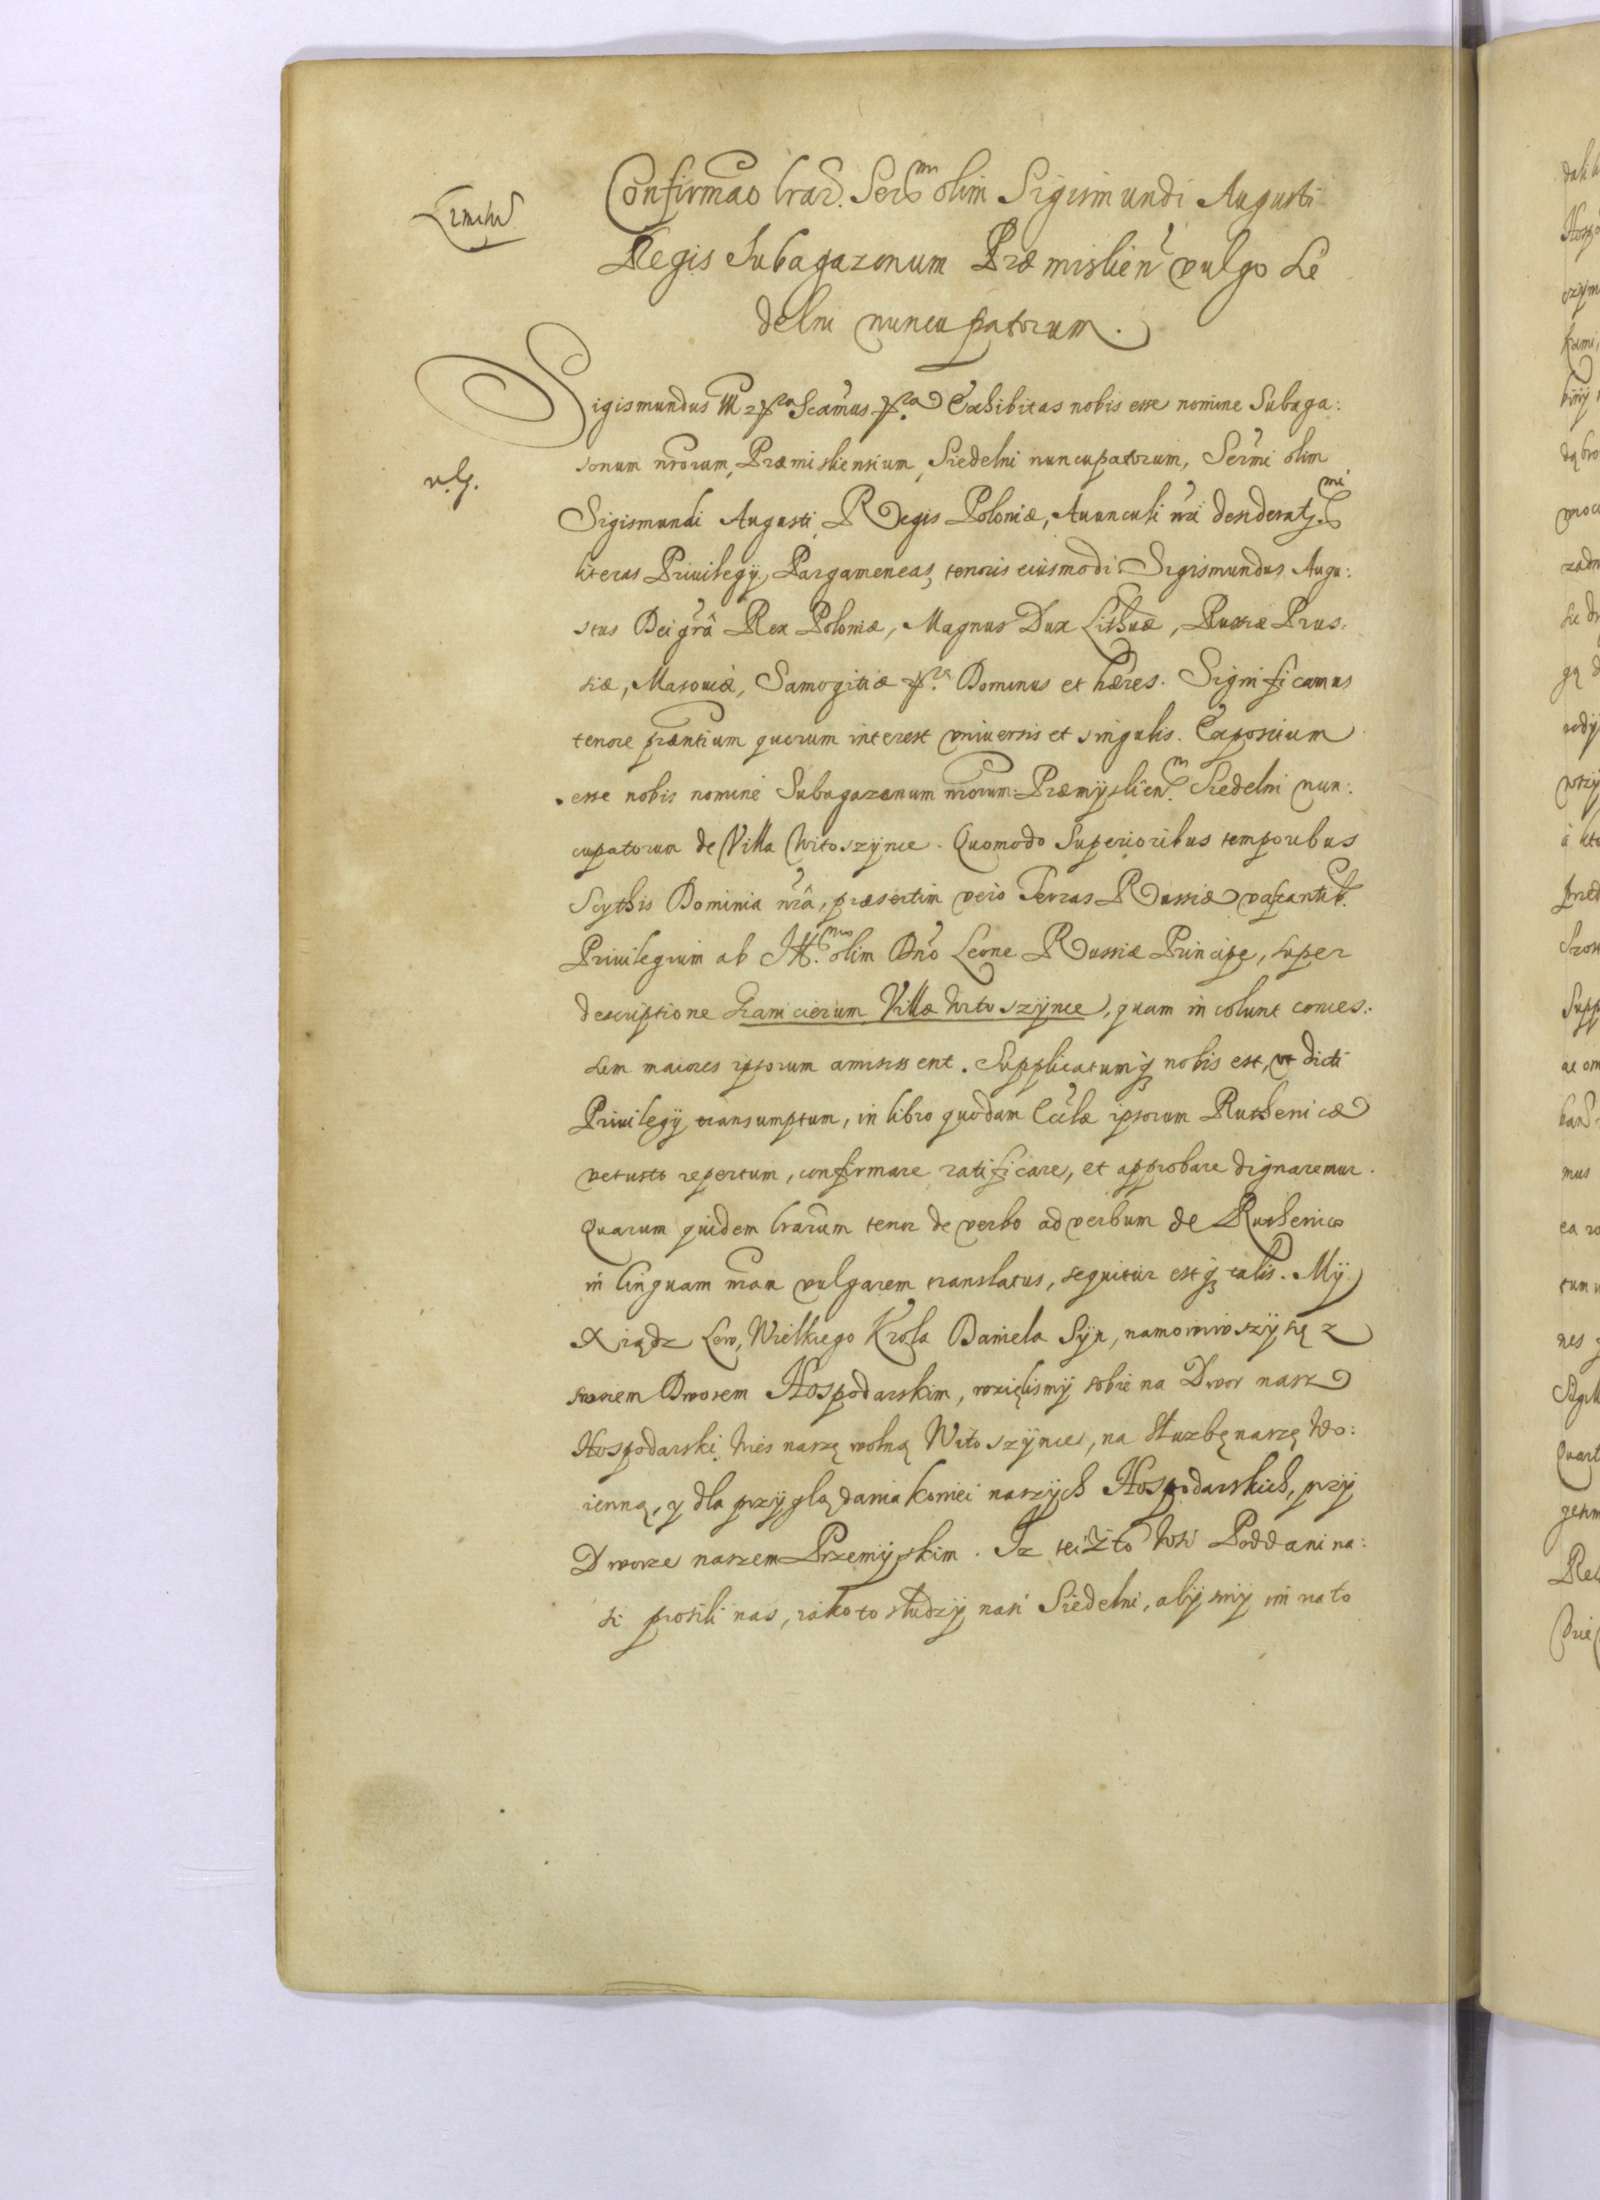 Confirmao lrar. Ser mi olim Sigismundi Augusti
Regis Subagazonum Præmislien vulgo Se
delni nuncupatorum.
Sigismundus III &ra Scamus &ra Exhibitas nobis esse nomine Subaga:
sonum nrorum Præmisliensium, Siedelni nuncupatorum, Sermi olim
v. g.
Sigismundi Augusti Regis Poloniæ, Auunculi nri desideratss mi
literas Priuilegÿ Pargameneas, tenoris eiusmodi. Sigismundus Augu:
stus Dei gra Rex Poloniæ, Magnus Dux Lithuæ, Russiæ Prus:
siæ, Masouiæ, Samogitiæ &ra Dominus et hæres. Significamus
tenore præntium quorum interest vniuersis et singulis. Expositum
esse nobis nomine Subagazonum nrorum Præmÿslien. Siedelni nun:
cupatorum de Villa Witoszÿnce. Quomodo Superioribus temporibus
Scythis Dominia nra, præsertim vero Terras Russiæ vastantib.
Priuilegium ab Ill. mo olim Dno Leone Russiæ Principe, super
descriptione Granicierum Villæ Witoszÿnce, quam incolunt conces:
sum maiores ipsorum amisissent. Supplicatumq nobis est, vt dicti
Priuilegÿ transumptum, in libro quodam Ecclæ ipsorum Ruthenicæ
vetusto repertum, confirmare ratificare, et approbare dignaremur.
Quarum quidem lrarum tenor de verbo ad verbum de Ruthenico
in linguam nram vulgarem translatus, sequitur estq talis. Mÿ
Xiądz Lew, Wielkiego Krola Daniela Sÿn, namowiwszÿ się z
swoiem Dworem Hospodarskim, wzięlismÿ sobie na Dwor nasz
Hospodarski Wies naszę wolną Witoszÿnce, na służbę naszę Wo:
ienną, y dla przÿglądania koniei naszÿch Hospodarskich, przÿ
Dworze naszem Przemÿskim. Iz teiżto Wsi Poddani na:
si prosili nas, iakoto słudzÿ nasi Siedelni, abÿsmÿ im na to